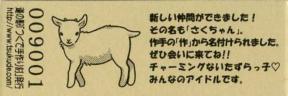 道の駅「つくで手作り村」発行
http://www.tsukude.com/
009001
新しい仲間ができました！
その名も「さくちゃん」。
作手の「作」から名付けられました。
ぜひ会いに来てね!!
チャーミングないたずらっ子♡
みんなのアイドルです。